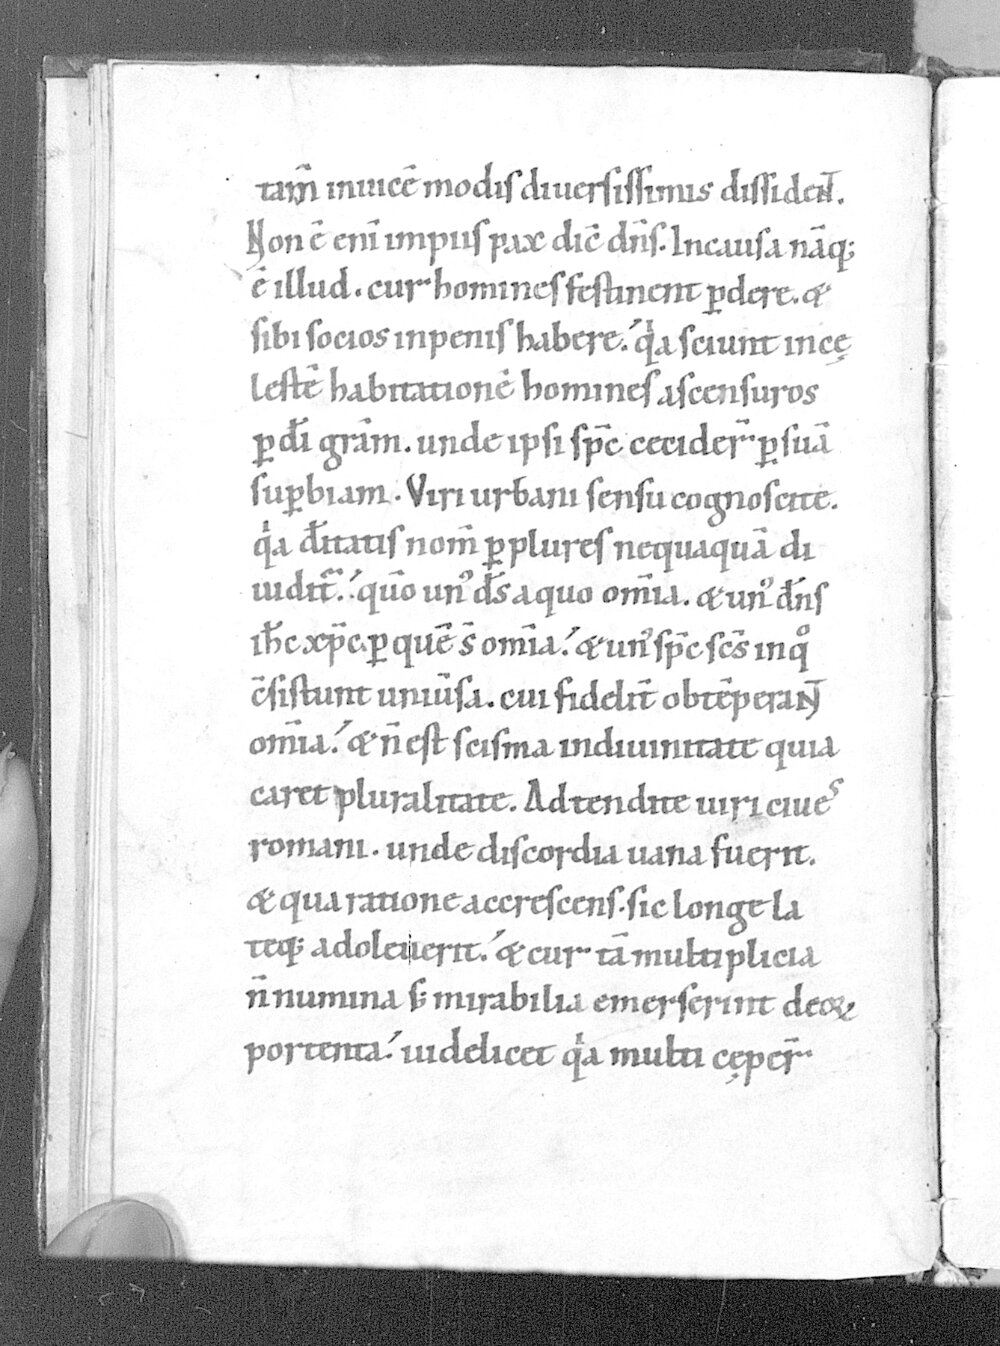 tam̄ inuicē modis diuersissimis dissident.
Non ē enī impiis pax dic̄ dn̄s. In causa nāq;
ē illud. cur homines festinent ꝑdere. &
sibi socios in penis habere. qͥa sciunt in cę
lestē habitationē homines ascensuros
ꝑ dī grām. unde ipsi sp̄c cecider̄ ꝑ suā
suꝑbiam. Viri urbani sensu cognoscite.
qͥa dēitatis nom̄ ꝑ plures nequaquā di
uidit̄. qūo unꝰ d̄s a quo om̄ia. & unꝰ dn̄s
ih̄c xp̄c. ꝑ quē s̄ om̄ia. & unꝰ sp̄c sc̄s in qͦ
c̄sistunt uniūsa. cui fidelit̄ obtēperant
om̄ia. & n̄ est scisma in diuinitate quia
caret pluralitate. Adtendite uiri ciues
romani. unde discordia uana fuerit.
& qua ratione accrescens. sic longe la
teq; adoleuerit. & cur tā multiplicia
n̄ numina s; mirabilia emerserint deoꝝ
portenta. uidelicet qͥa multi cęper̄